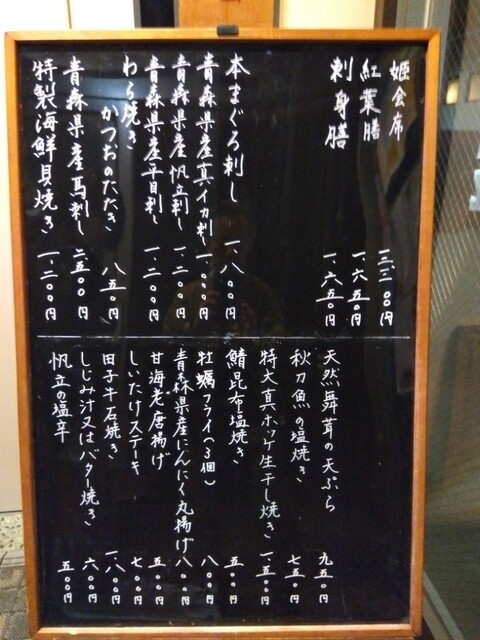 姫会席 三、三〇〇円
紅葉膳 一、六五〇円
刺身膳 一、六五〇円
本まぐろ刺し 一、八〇〇円
青森県産真イカ刺し 一、〇〇〇円
青森県産帆立刺し 一、二〇〇円
青森県産平目刺し 一、二〇〇円
わら焼き
かつおのたたき 八五〇円
青森県産馬刺し 二、五〇〇円
特製海鮮貝焼き 一、二〇〇円
天然舞茸の天ぷら 九五〇円
秋刀魚の塩焼き 七五〇円
特大真ホッケ生干し焼き 一、五〇〇円
鯖昆布塩焼き 五〇〇円
牡蠣フライ(3個) 八〇〇円
青森県産にんにく丸揚げ 八〇〇円
甘海老唐揚げ 五〇〇円
しいたけステーキ 七〇〇円
田子牛石焼き 一、八〇〇円
しじみ汁又はバター焼き 六〇〇円
帆立の塩辛 五〇〇円